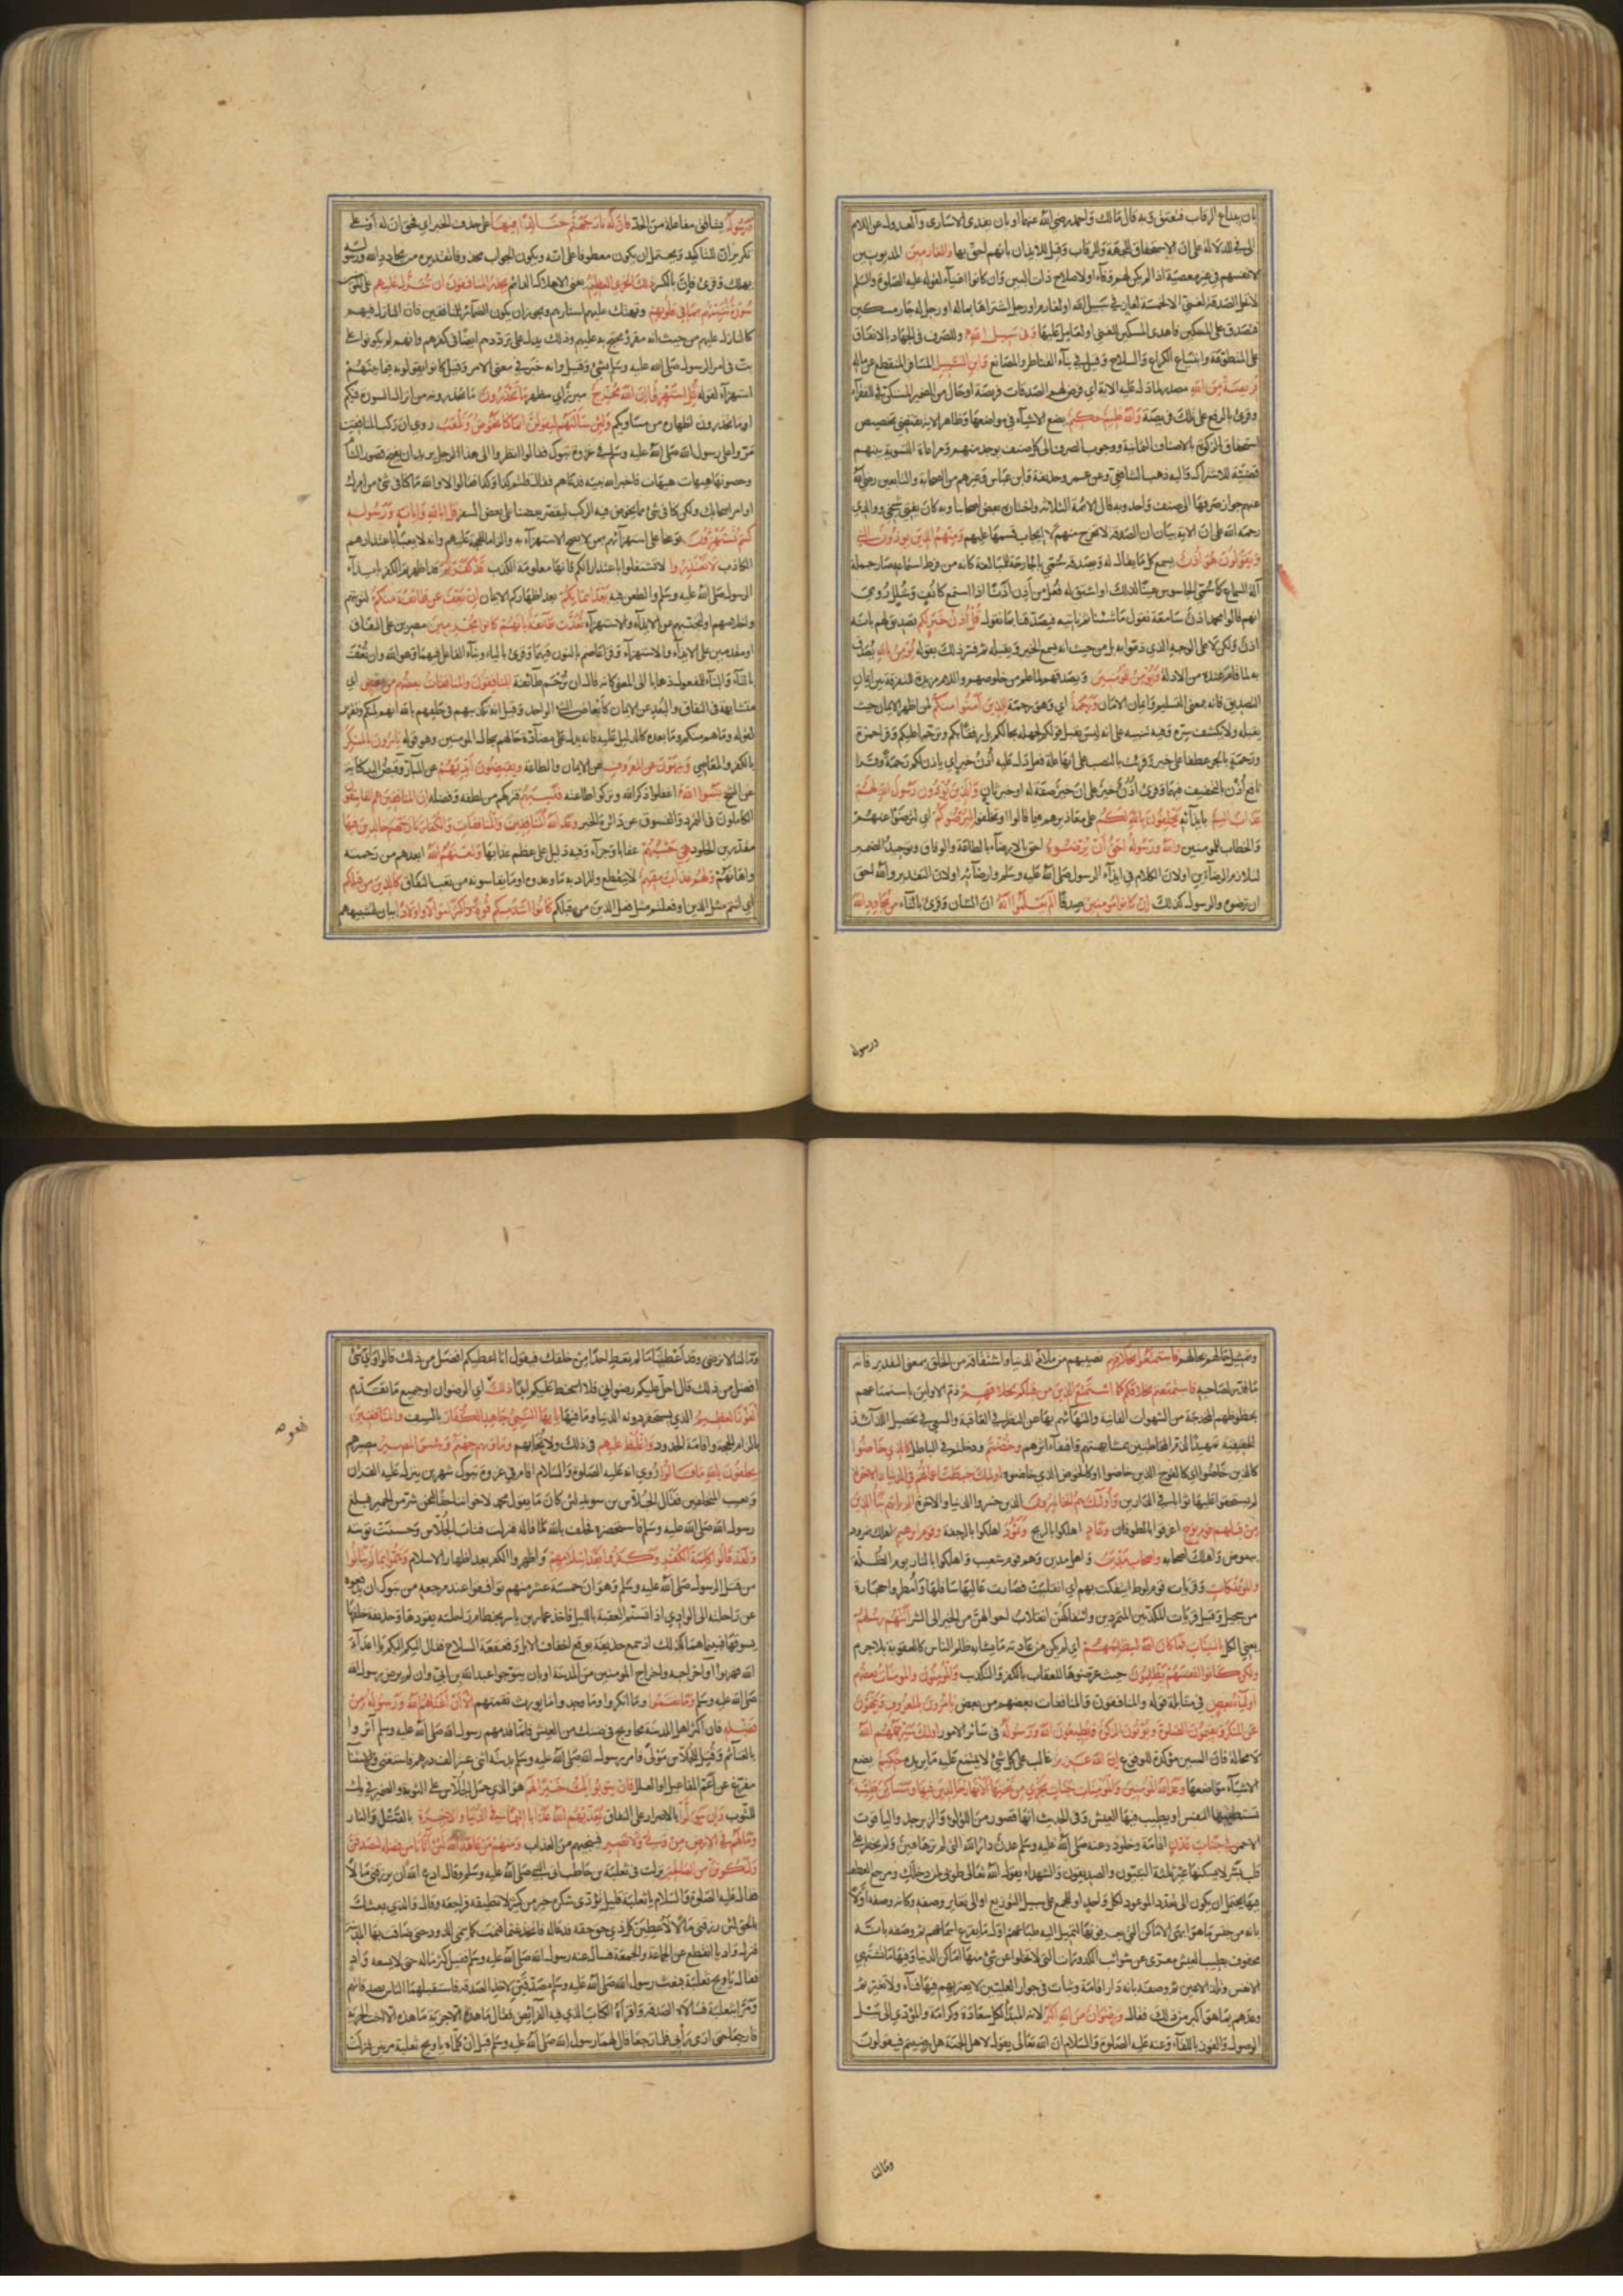 بان يبتاع الرقاب فتعتق وبه قال مالك واحمد رضي الله عنهما او بان يفدى الاسارى والعدول عن اللام
الى في للدلالة على ان الاستحقاق للجهة لا للرقاب وقيل للايذان بانهم احق بها والغارمين المديونين
لانفسهم في غير معصية اذا لم يكن لهم وفاء او لاصلاح ذات البين وان كانوا اغنياء لقوله عليه الصلوة والسلم
لا تحل الصدقة لغني الا لخمسة لغاز في سبيل الله او لغارم او رجل اشتراها بماله او رجل له جار مسكين
فتصدق على المسكين فاهدى المسكين للغني او لعامل عليها وفي سبيل الله وللصرف في الجهاد بالانفاق
على المتطوعة وابتياع الكراع والسلاح وقيل في بناء القناطر والمصانع وابن السبيل المسافر المنقطع عن ماله
فريضة من الله مصدر لما دل عليه الاية اي فرض لهم الصدقات فريضة او حال من الضمير المستكن في للفقراء
وقرئ بالرفع على تلك فريضة والله عليم حكيم يضع الاشياء في مواضعها وظاهر الاية يقتضي تخصيص
استحقاق الزكوة بالاصناف الثمانية ووجوب الصرف الى كل صنف يوجد منهم ومراعاة التسوية بينهم
قضية للاشتراك واليه ذهب الشافعي وعن عمر وحذيفة وابن عباس وغيرهم من الصحابة والتابعين رضي الله
عنهم جواز صرفها الى صنف واحد وبه قال الائمة الثلاثة واختاره بعض اصحابنا وبه كان يفتي شيخي ووالدي
رحمه الله على ان الاية بيان ان الصدقة لا تخرج منهم لا ايجاب قسمها عليهم ومنهم الذين يؤذون النبي
ويقولون هو اذن يسمع كل ما يقال له ويصدقه سمي بالجارحة للمبالغة كانه من فرط استماعه صار جملته
آلة السماع كما سمي الجاسوس عينا لذلك او اشتق له فعل من اذن اذنا اذا استمع كانف وشلل روي
انهم قالوا محمد اذن سامعة نقول ما شئنا ثم ناتيه فيصدقنا بما نقول قل اذن خير لكم تصديق لهم بانه
اذن ولكن لا على الوجه الذي ذموا به بل من حيث انه يسمع الخير ويقبله ثم فسر ذلك بقوله يؤمن بالله يصدق
به لما قام عنده من الادلة ويؤمن للمؤمنين ويصدقهم لما علم من خلوصهم واللام مزيدة للتفرقة بين ايمان
التصديق فانه بمعنى التسليم وايمان الامان ورحمة اي وهو رحمة للذين آمنوا منكم لمن اظهر الايمان حيث
يقبله ولا يكشف سره وفيه تنبيه على انه ليس يقبل قولكم لجهله بحالكم بل رفقا بكم وترحما عليكم وقرا حمزة
ورحمة بالجر عطفا على خير وقرئت بالنصب على انها علة فعل دل عليه اذن خير اي ياذن لكم رحمة وقرا
نافع اذن بالتخفيف فيهما وقرئ اذن خير على ان خير صفة له او خبر ثان والذين يؤذون رسول الله لهم
عذاب اليم بايذائه يحلفون بالله لكم على معاذيرهم فيما قالوا او تخلفوا ليرضوكم اي لترضوا عنهم
والخطاب للمومنين والله ورسوله احق ان يرضوه احق بالارضاء بالطاعة والوفاق وتوحيد الضمير
لتلازم الرضاءين او لان الكلام في ايذاء الرسول صلى الله عليه وسلم وارضائه او لان التقدير والله احق
ان يرضوه والرسول كذلك ان كانوا مومنين صدقا الم يعلموا انه ان الشان وقرئ بالتاء من يحادد الله
ورسوله
ورسوله يشاقق مفاعلة من الحد فان له نار جهنم خالدا فيها على حذف الخبر اي فحق ان له او على
تكرير ان للتاكيد ويحتمل ان يكون معطوفا على انه ويكون الجواب محذوفا تقديره من يحادد الله ورسوله
يهلك وقرئ فان بالكسر ذلك الخزي العظيم يعني الاهلاك الدائم يحذر المنافقون ان تنزل عليهم على المومنين
سورة تنبئهم بما في قلوبهم وتهتك عليهم استارهم ويجوز ان يكون الضمائر للمنافقين فان النازل فيهم
كالنازل عليهم من حيث انه مقرو ومحتج به عليهم وذلك يدل على ترددهم ايضا في كفرهم وانهم لم يكونوا على
بت في امر الرسول صلى الله عليه وسلم بشئ وقيل انه خبر في معنى الامر وقيل كانوا يقولونه فيما بينهم
استهزاء لقوله قل استهزؤا ان الله مخرج مبرز او مظهر ما تحذرون ما تحذرونه من انزال السورة فيكم
او ما تحذرون اظهاره من مساويكم ولئن سالتهم ليقولن انما كنا نخوض ونلعب روي ان ركب المنافقين
مروا على رسول الله صلى الله عليه وسلم في غزوة تبوك فقالوا انظروا الى هذا الرجل يريد ان يفتح قصور الشام
وحصونها هيهات هيهات فاخبر الله نبيه فدعاهم فقال قلتم كذا وكذا فقالوا لا والله ما كنا في شئ من امرك
او امر اصحابك ولكن كنا في شئ مما يخوض فيه الركب ليقصر بعضنا على بعض السفر قل ابالله واياته ورسوله
كنتم تستهزؤن توبيخا على استهزائهم بمن لا يصح الاستهزاء به والزاما للحجة عليهم وانه لا يعبأ باعتذارهم
الكاذب لا تعتذروا لا تشتغلوا باعتذاراتكم فانها معلومة الكذب قد كفرتم قد اظهرتم الكفر بايذاء
الرسول صلى الله عليه وسلم والطعن فيه بعد ايمانكم بعد اظهاركم الايمان ان نعف عن طائفة منكم لتوبتهم
واخلاصهم او لتجنبهم عن الايذاء والاستهزاء نعذب طائفة بانهم كانوا مجرمين مصرين على النفاق
او مقدمين على الايذاء والاستهزاء وقرا عاصم بالنون فيهما وقرئ بالياء وبناء الفاعل فيهما وهو الله وان تعف
بالتاء والبناء للمفعول ذهابا الى المعنى كانه قال ان ترحم طائفة المنافقون والمنافقات بعضهم من بعض اي
متشابهة في النفاق والبعد عن الايمان كابعاض الشئ الواحد وقيل انه تكذيبهم في حلفهم بالله انهم لمنكم وتقرير
لقوله وما هم منكم وما بعده كالدليل عليه فانه يدل على مضادة حالهم بحال المومنين وهو قوله يامرون بالمنكر
بالكفر والمعاصي وينهون عن المعروف عن الايمان والطاعة ويقبضون ايديهم عن المبار وقبض اليد كناية
عن الشح نسوا الله اغفلوا ذكر الله وتركوا طاعته فنسيهم فتركهم من لطفه وفضله ان المنافقين هم الفاسقون
الكاملون في التمرد والفسوق عن دائرة الخير وعد الله المنافقين والمنافقات والكفار نار جهنم خالدين فيها
مقدرين الخلود هي حسبهم عقابا وجزاء وفيه دليل على عظم عذابها ولعنهم الله ابعدهم من رحمته
واهانهم ولهم عذاب مقيم لا ينقطع والمراد به ما وعدوه او ما يقاسونه من تعب النفاق كالذين من قبلكم
اي انتم مثل الذين او فعلتم مثل فعل الذين من قبلكم كانوا اشد منكم قوة واكثر اموالا واولادا بيان لتشبيههم
وتمثيل حالهم بحالهم فاستمتعوا بخلاقهم نصيبهم من ملاذ الدنيا واشتقاقه من الخلق بمعنى التقدير فانه
ما قدر لصاحبه فاستمتعتم بخلاقكم كما استمتع الذين من قبلكم بخلاقهم ذم الاولين باستمتاعهم
بحظوظهم المخدجة من الشهوات الفانية والتهائهم بها عن النظر في العاقبة والسعي في تحصيل اللذائذ
الحقيقية تمهيدا لذم المخاطبين بمشابهتهم واقتفاء اثرهم وخضتم ودخلتم في الباطل كالذي خاضوا
كالذين خاضوا او كالفوج الذين خاضوا او كالخوض الذي خاضوه اولئك حبطت اعمالهم في الدنيا والاخرة
لم يستحقوا عليها ثوابا في الدارين واولئك هم الخاسرون الذين خسروا الدنيا والاخرة الم ياتهم نبأ الذين
من قبلهم قوم نوح اغرقوا بالطوفان وعاد اهلكوا بالريح وثمود اهلكوا بالرجفة وقوم ابرهيم اهلك نمرود
ببعوض واهلك اصحابه واصحاب مدين واهل مدين وهم قوم شعيب واهلكوا بالنار يوم الظلة
والمؤتفكات وقريات قوم لوط ائتفكت بهم اي انقلبت فصارت عاليها سافلها وامطروا حجارة
من سجيل وقيل قريات المكذبين المتمردين وائتفاكهن انقلاب احوالهن من الخير الى الشر اتتهم رسلهم
يعني الكل بالبينات فما كان الله ليظلمهم اي لم يكن من عادته ما يشابه ظلم الناس كالعقوبة بلا جرم
ولكن كانوا انفسهم يظلمون حيث عرضوها للعقاب بالكفر والتكذيب والمؤمنون والمومنات بعضهم
اولياء بعض في مقابلة قوله والمنافقون والمنافقات بعضهم من بعض يامرون بالمعروف وينهون
عن المنكر ويقيمون الصلوة ويؤتون الزكوة ويطيعون الله ورسوله في سائر الامور اولئك سيرحمهم الله
لا محالة فان السين مؤكدة للوقوع ان الله عزيز غالب على كل شئ لا يمتنع عليه ما يريده حكيم يضع
الاشياء مواضعها وعد الله المؤمنين والمؤمنات جنات تجري من تحتها الانهار خالدين فيها ومساكن طيبة
تستطيبها النفس او يطيب فيها العيش وفي الحديث انها قصور من اللؤلؤ والزبرجد والياقوت
الاحمر في جنات عدن اقامة وخلود وعنه صلى الله عليه وسلم عدن دار الله التي لم ترها عين ولم يخطر على
قلب بشر لا يسكنها غير ثلثة النبيون والصديقون والشهداء يقول الله تعالى طوبى لمن دخلك ومرجع العطف
فيها يحتمل ان يكون الى تعدد الموعود لكل واحد او للجميع على سبيل التوزيع او الى تغاير وصفه وكانه وصفه اولا
بانه من جنس ما هو ابهى الاماكن التي يعرفونها لتميل اليه طباعهم اول ما يقرع اسماعهم ثم وصفه بانه
محفوف بطيب العيش معرى عن شوائب الكدورات التي لا تخلوا عن شئ منها اماكن الدنيا وفيها ما تشتهي
الانفس وتلذ الاعين ثم وصفه بانه دار اقامة وثبات في جوار العليين لا يعتريهم فيها فناء ولا تغير ثم
وعدهم بما هو اكبر من ذلك فقال ورضوان من الله اكبر لانه المبدأ لكل سعادة وكرامة والمؤدي الى نيل
الوصول والفوز باللقاء وعنه عليه الصلوة والسلام ان الله تعالى يقول لاهل الجنة هل رضيتم فيقولون
وما لنا
وما لنا لا نرضى وقد اعطيتنا ما لم تعط احدا من خلقك فيقول انا اعطيكم افضل من ذلك قالوا واي شئ
افضل من ذلك قال احل عليكم رضواني فلا اسخط عليكم ابدا ذلك اي الرضوان او جميع ما تقدم
الفوز العظيم الذي يستحقر دونه الدنيا وما فيها يا ايها النبي جاهد الكفار بالسيف والمنافقين
بالزام الحجة واقامة الحدود واغلظ عليهم في ذلك ولا تحابهم وماويهم جهنم وبئس المصير مصيرهم
يحلفون بالله ما قالوا روي انه عليه الصلوة والسلام اقام في غزوة تبوك شهرين ينزل عليه القران
ويعيب المتخلفين فقال الجلاس بن سويد لئن كان ما يقول محمد لاخواننا حقا لنحن شر من الحمير فبلغ
رسول الله صلى الله عليه وسلم فاستحضره فحلف بالله ما قاله فنزلت فتاب الجلاس وحسنت توبته
ولقد قالوا كلمة الكفر وكفروا بعد اسلامهم واظهروا الكفر بعد اظهار الاسلام وهموا بما لم ينالوا
من قتل الرسول صلى الله عليه وسلم وهو ان خمسة عشر منهم توافقوا عند مرجعه من تبوك ان يدفعوه
عن راحلته الى الوادي اذا تسنم العقبة بالليل فاخذ عمار بن ياسر بخطام راحلته يقودها وحذيفة خلفها
يسوقها فبينا هما كذلك اذ سمع حذيفة بوقع اخفاف الابل وقعقعة السلاح فقال اليكم اليكم يا اعداء
الله فهربوا او اخراجه واخراج المومنين من المدينة او بان يتوجوا عبد الله بن ابي وان لم يرض رسول الله
صلى الله عليه وسلم وما نقموا وما انكروا وما وجدوا ما يورث نقمتهم الا ان اغناهم الله ورسوله من
فضله فان اكثر اهل المدينة محاويج في ضنك من العيش فلما قدمهم رسول الله صلى الله عليه وسلم اثروا
بالغنائم وقتل للجلاس مولى فامر رسول الله صلى الله عليه وسلم بديته اثنى عشر الف درهم فاستغنى والاستثناء
مفرغ من اعم المفاعيل او العلل فان يتوبوا يك خيرا لهم هو الذي حمل الجلاس على التوبة والضمير في يك
للتوب وان يتولوا بالاصرار على النفاق يعذبهم الله عذابا اليما في الدنيا والاخرة بالقتل والنار
وما لهم في الارض من ولي ولا نصير فينجيهم من العذاب ومنهم من عاهد الله لئن آتانا من فضله لنصدقن
ولنكونن من الصالحين نزلت في ثعلبة بن حاطب اتى النبي صلى الله عليه وسلم وقال ادع الله ان يرزقني مالا
فقال عليه الصلوة والسلام يا ثعلبة قليل تؤدى شكره خير من كثير لا تطيقه فراجعه وقال والذي بعثك
بالحق لئن رزقني مالا لاعطين كل ذي حق حقه فدعا له فاتخذ غنما فنمت كما ينمى الدود حتى ضاقت بها المدينة
فنزل واديا وانقطع عن الجماعة والجمعة فسال عنه رسول الله صلى الله عليه وسلم فقيل كثر ماله حتى لا يسعه واد
فقال يا ويح ثعلبة فبعث رسول الله صلى الله عليه وسلم مصدقين لاخذ الصدقة فاستقبلهما الناس بصدقاتهم
ومرا بثعلبة فسالاه الصدقة واقرأاه الكتاب الذي فيه الفرائض فقال ما هذه الا جزية ما هذه الا اخت الجزية
فارجعا حتى ارى رأيي فلما رجعا قال لهما رسول الله صلى الله عليه وسلم قبل ان يكلماه يا ويح ثعلبة مرتين فنزلت